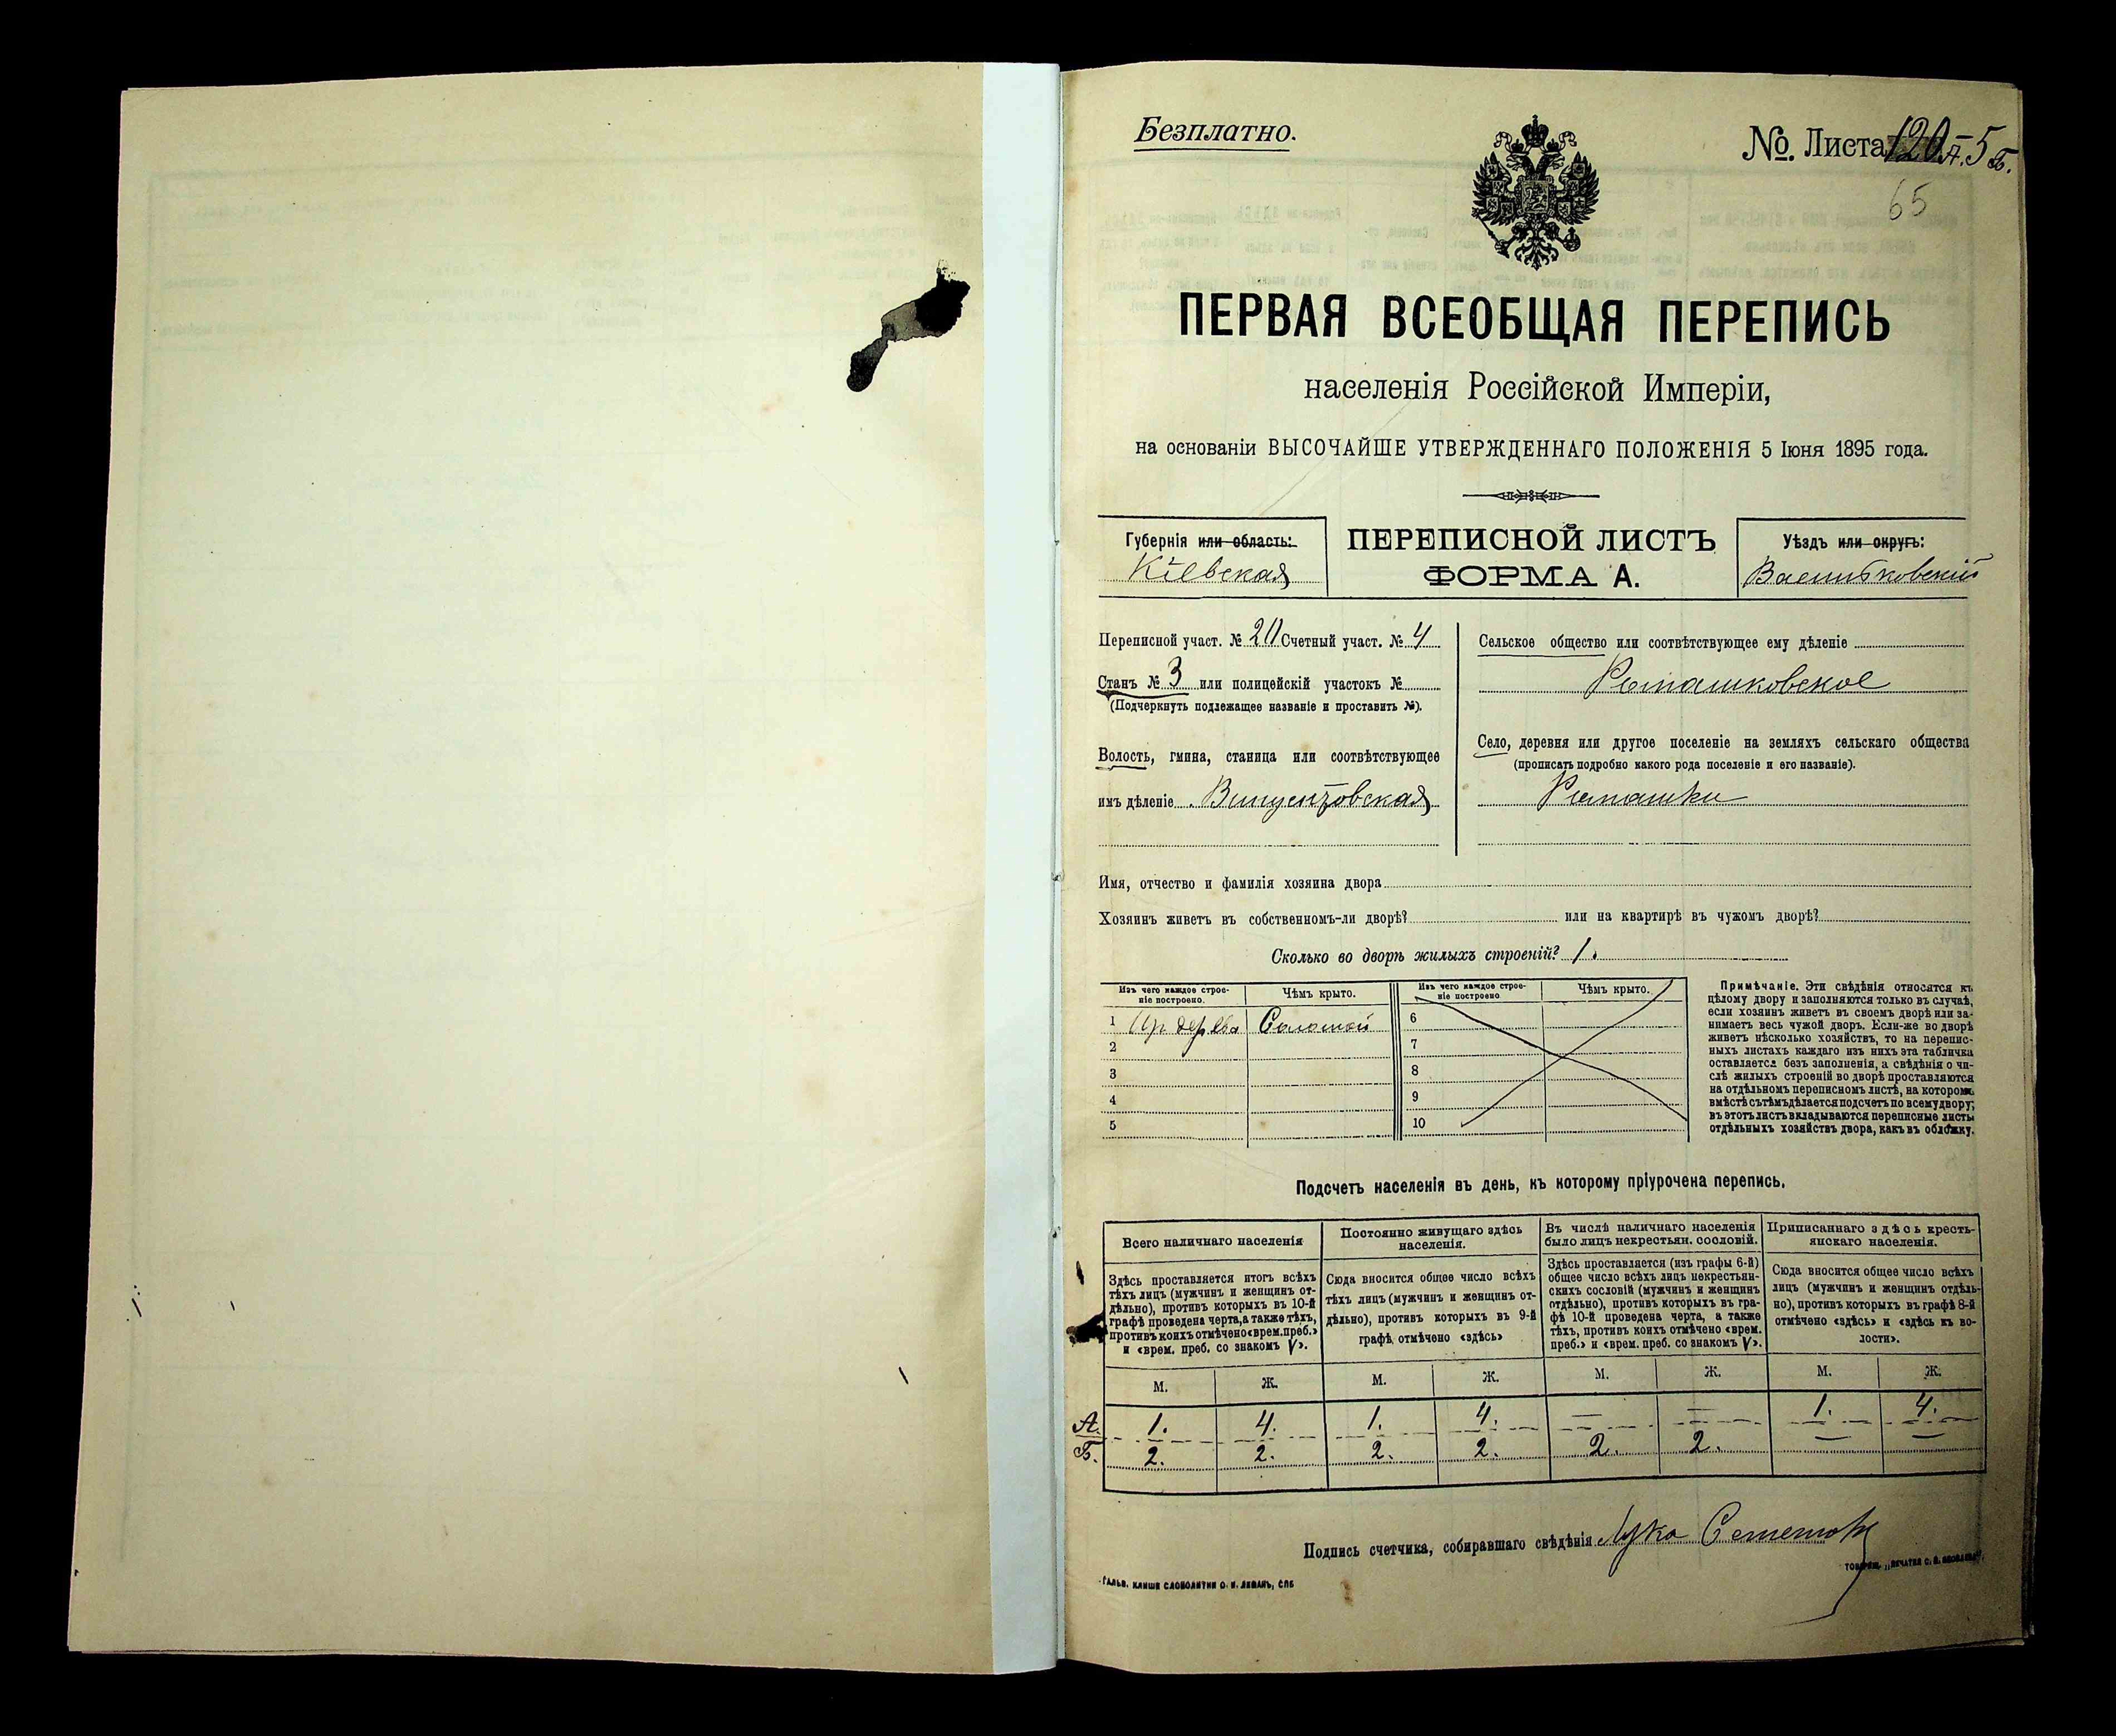 Безплатно.
№. Листа 120 А.-5 Б.
65
ПЕРВАЯ ВСЕОБЩАЯ ПЕРЕПИСЬ
населенія Россійской Имперіи,
на основаніи ВЫСОЧАЙШЕ УТВЕРЖДЕННАГО ПОЛОЖЕНІЯ 5 Іюня 1895 года.
Губернія или область:
Кіевская
ПЕРЕПИСНОЙ ЛИСТЪ
ФОРМА А.
Уѣздъ или округъ:
Васильковскій
Переписной участ. № 20 Счетный участ. № 4
Станъ № 3 или полицейскій участокъ №
(Подчеркнуть подлежащее названіе и проставить №).
Волость, гмина, станица или соотвѣтствующее
имъ дѣленіе
Сельское общество или соотвѣтствующее ему дѣленіе
Ромашковское
Село, деревня или другое поселеніе на земляхъ сельскаго общества
(прописать подробно какого рода поселеніе и его названіе).
Ромашки
Имя, отчество и фамилія хозяина двора
Хозяинъ живетъ въ собственномъ-ли дворѣ? или на квартирѣ въ чужомъ дворѣ?
Сколько во дворѣ жилыхъ строеній? 1.
Изъ чего каждое строе-
ніе построено.
Чѣмъ крыто.
1 Изъ дерева Соломой
2
3
4
5
Изъ чего каждое строе-
ніе построено
Чѣмъ крыто.
6
7
8
9
10
Примѣчаніе. Эти свѣдѣнія относятся къ
цѣлому двору и заполняются только въ случаѣ,
если хозяинъ живетъ въ своемъ дворѣ или за-
нимаетъ весь чужой дворъ. Если-же во дворѣ
живетъ нѣсколько хозяйствъ, то на перепис-
ныхъ листахъ каждаго изъ нихъ эта табличка
оставляется безъ заполненія, а свѣдѣнія о чи-
слѣ жилыхъ строеній во дворѣ проставляются
на отдѣльномъ переписномъ листѣ, на которомъ
вмѣстѣ съ тѣмъ дѣлается подсчетъ по всему двору;
въ этотъ листъ вкладываются переписные листы
отдѣльныхъ хозяйствъ двора, какъ въ обложку.
Подсчетъ населенія въ день, къ которому пріурочена перепись.
Всего наличнаго населенія
Здѣсь проставляется итогъ всѣхъ
тѣхъ лицъ (мужчинъ и женщинъ от-
дѣльно), противъ которыхъ въ 10-й
графѣ проведена черта, а также тѣхъ,
противъ коихъ отмѣчено «врем. преб.»
и «врем. преб. со знакомъ V».
Постоянно живущаго здѣсь
населенія.
Сюда вносится общее число всѣхъ
тѣхъ лицъ (мужчинъ и женщинъ от-
дѣльно), противъ которыхъ въ 9-й
графѣ отмѣчено «здѣсь»
Въ числѣ наличнаго населенія
было лицъ некрестьян. сословій.
Здѣсь проставляется (изъ графы 6-й)
общее число всѣхъ лицъ некрестьян-
скихъ сословій (мужчинъ и женщинъ
отдѣльно), противъ которыхъ въ гра-
фѣ 10-й проведена черта, а также
тѣхъ, противъ коихъ отмѣчено «врем.
преб.» и «врем. преб. со знакомъ V».
Приписаннаго здѣсь кресть-
янскаго населенія.
Сюда вносится общее число всѣхъ
лицъ (мужчинъ и женщинъ отдѣль-
но), противъ которыхъ въ графѣ 8-й
отмѣчено «здѣсь» и «здѣсь къ во-
лости».
М. Ж. М. Ж. М. Ж. М. Ж.
А. 1. 4. 1. 4. — — 1. 4.
Б. 2. 2. 2. 2. 2. 2. — —
Подпись счетчика, собиравшаго свѣдѣнія Лука